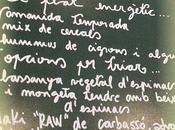 el plat energètic...
amanida temporada
mix de cereals
hummus de cigrons i algu
opcions per triar...
lassanya vegetal d'espinacs
i mongeta tendre amb beix
d'espinacs
maki "RAW" de carbassó, alvo